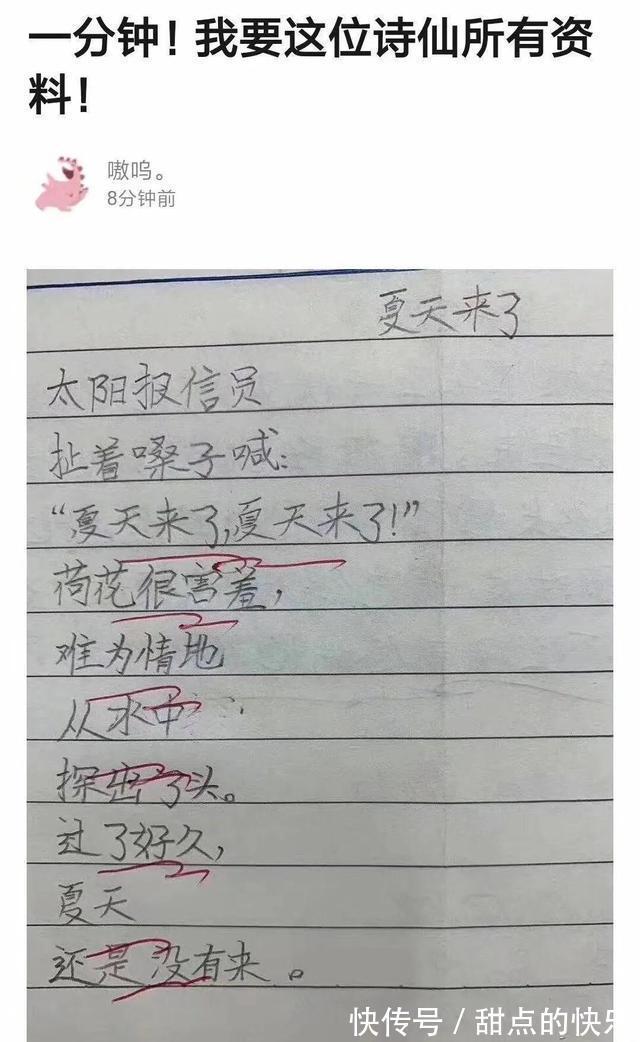 一分钟！我要这位诗仙所有资
料！
嗷呜。
8分钟前
夏天来了
太阳报信员
扯着嗓子喊：
“夏天来了，夏天来了！”
荷花很害羞，
难为情地
从水中
探出了头。
过了好久，
夏天
还是没有来。
快传号 / 甜点的快乐